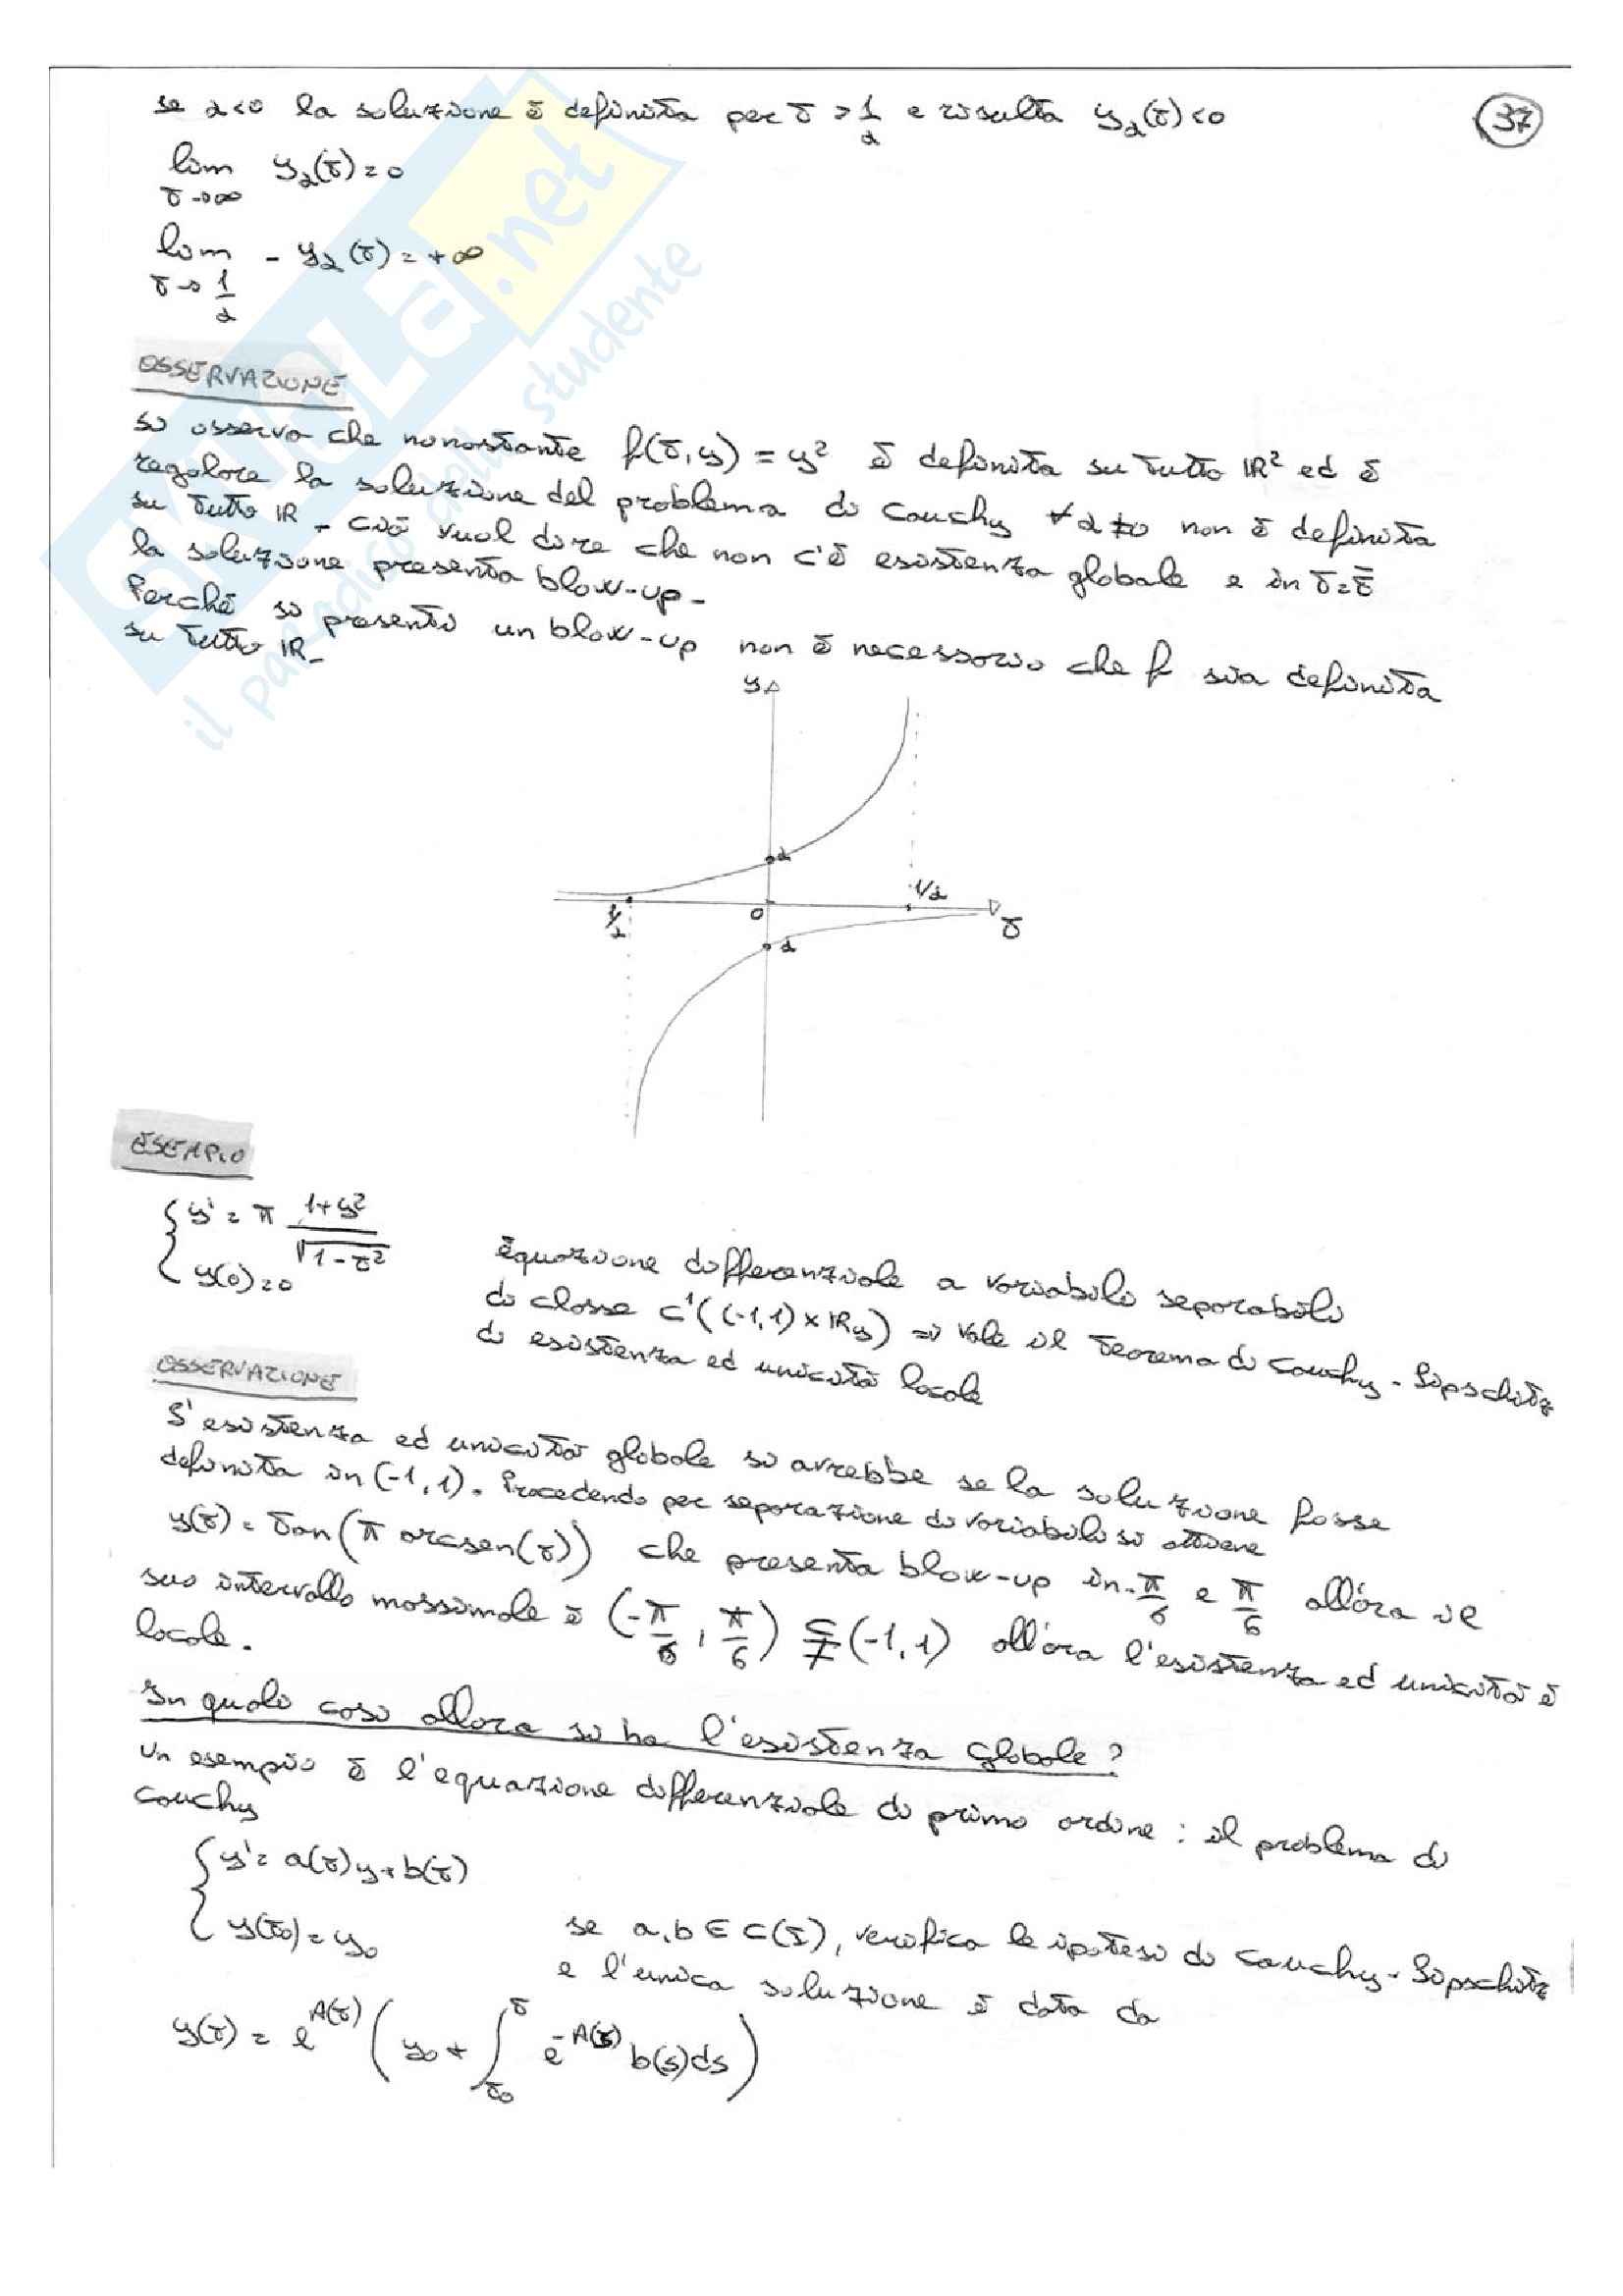 se α<0 la soluzione è definita per t > 1/α e risulta y_α(t)<0
37
lim y_α(t)=0
t→∞
lim - y_α(t) = +∞
t→ 1/α
OSSERVAZIONE
si osserva che nonostante f(t,y) = y² è definita su tutto IR² ed è
regolare la soluzione del problema di Cauchy ∀α≠0 non è definita
su tutto IR - ciò vuol dire che non c'è esistenza globale e in t=t̄
la soluzione presenta blow-up-
Perché si presenti un blow-up non è necessario che f sia definita
su tutto IR-
y
α
1/α
1/α
0
t
α
ESEMPIO
{ y' = π (1+y²)/√(1-t²)
y(0)=0
Equazione differenziale a variabili separabili
di classe C¹((-1,1)×IRy) ⇒ vale il teorema di Cauchy-Lipschitz
di esistenza ed unicità locale
OSSERVAZIONE
L'esistenza ed unicità globale si avrebbe se la soluzione fosse
definita in (-1,1). Procedendo per separazione di variabili si ottiene
y(t) = tan(π arcsen(t)) che presenta blow-up in -π/6 e π/6 allora il
suo intervallo massimale è (-π/6, π/6) ⊊ (-1,1) allora l'esistenza ed unicità è
locale.
In quali casi allora si ha l'esistenza globale?
Un esempio è l'equazione differenziale di primo ordine: il problema di
Cauchy
{ y' = a(t)y+b(t)
y(t₀) = y₀
se a,b ∈ C(I), verifica le ipotesi di Cauchy-Lipschitz
e l'unica soluzione è data da
y(t) = e^{A(t)} ( y₀ + ∫_{t₀}^{t} e^{-A(s)} b(s)ds )
SKUOLA.net
il paradiso dello studente